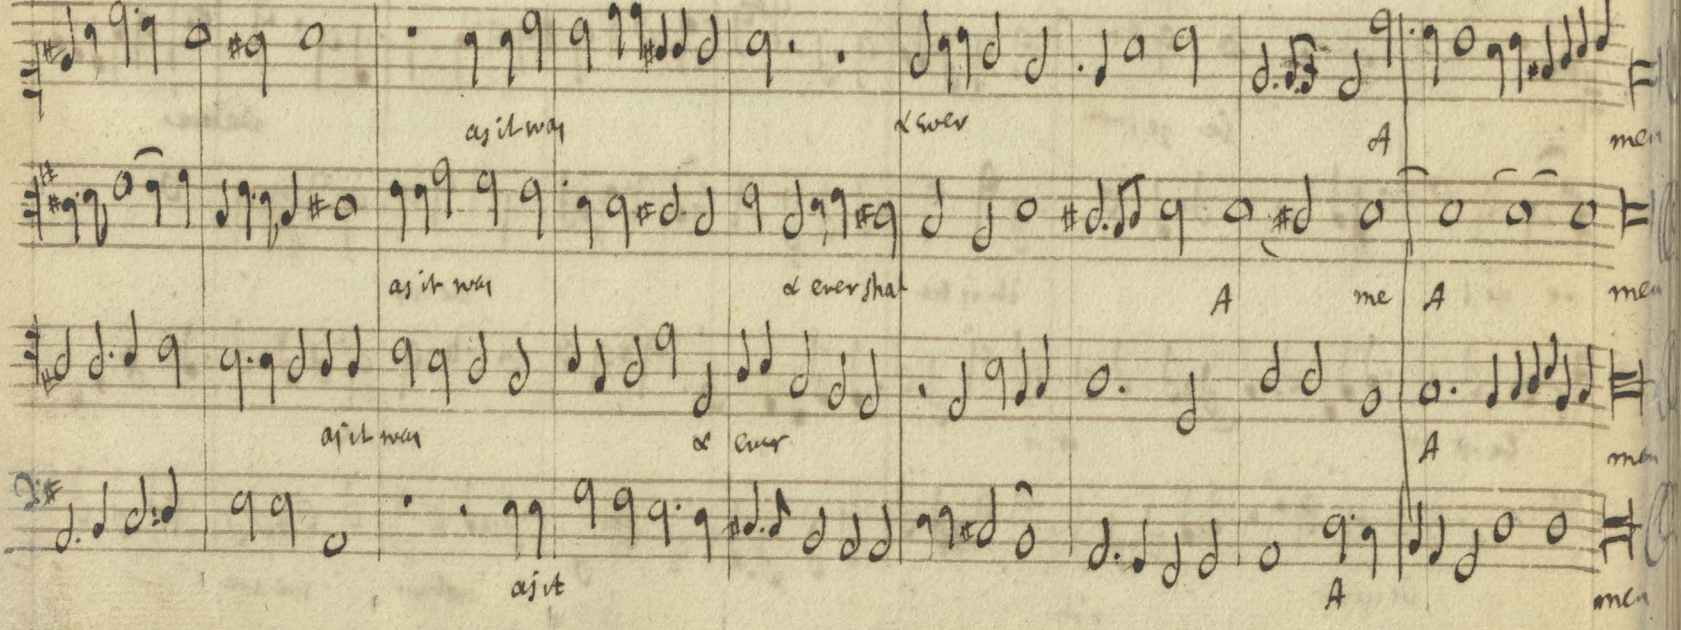 as it was & ever A men
as it was & ever shal A me A men
as it was & ever A men
as it A men